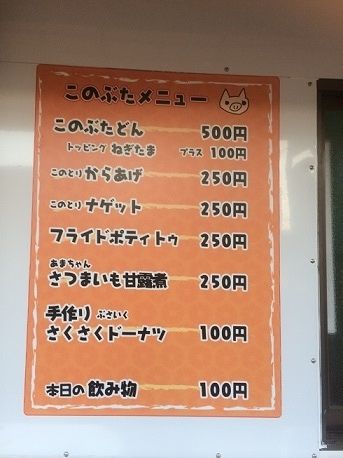 このぶたメニュー
このぶたどん 500円
トッピング ねぎたま プラス 100円
このとり からあげ 250円
このとり ナゲット 250円
フライドポティトゥ 250円
あまちゃん
さつまいも甘露煮 250円
手作り ぶさいく
さくさくドーナツ 100円
本日の飲み物 100円